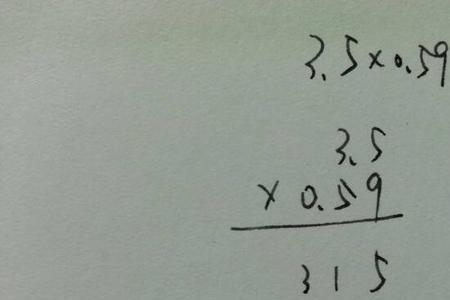 3.5×0.59
3.5
×0.59
315